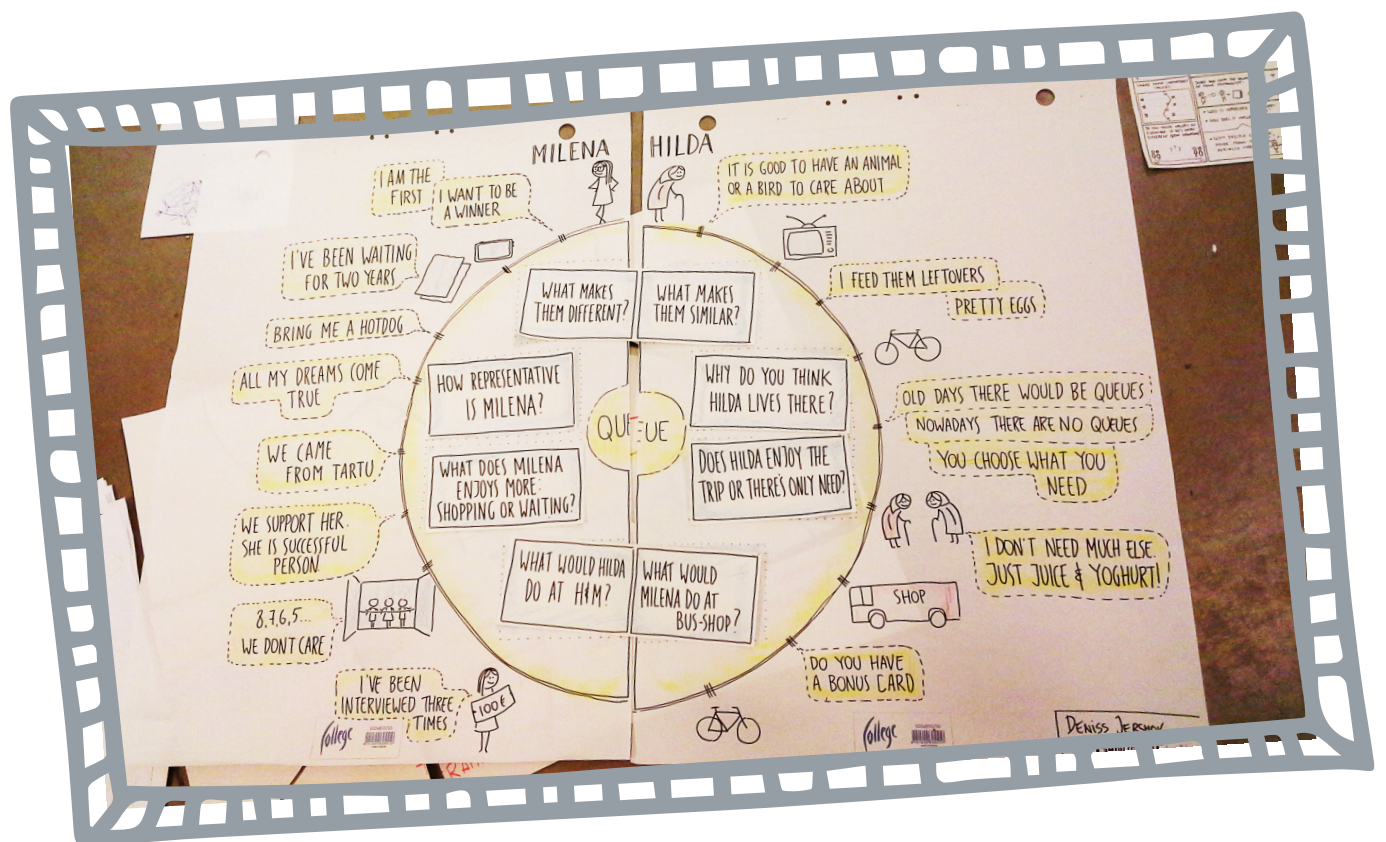 MILENA
HILDA
I AM THE
FIRST
I WANT TO BE
A WINNER
I'VE BEEN WAITING
FOR TWO YEARS
BRING ME A HOTDOG
ALL MY DREAMS COME
TRUE
WE CAME
FROM TARTU
WE SUPPORT HER.
SHE IS SUCCESSFUL
PERSON
8,7,6,5...
WE DONT CARE
I'VE BEEN
INTERVIEWED THREE
TIMES
100€
College
WHAT MAKES
THEM DIFFERENT?
WHAT MAKES
THEM SIMILAR?
HOW REPRESENTATIVE
IS MILENA?
WHY DO YOU THINK
HILDA LIVES THERE?
QUEUE
WHAT DOES MILENA
ENJOYS MORE:
SHOPPING OR WAITING?
DOES HILDA ENJOY THE
TRIP OR THERE'S ONLY NEED?
WHAT WOULD HILDA
DO AT H&M?
WHAT WOULD
MILENA DO AT
BUS-SHOP?
IT IS GOOD TO HAVE AN ANIMAL
OR A BIRD TO CARE ABOUT
I FEED THEM LEFTOVERS
PRETTY EGGS
OLD DAYS THERE WOULD BE QUEUES
NOWADAYS THERE ARE NO QUEUES
YOU CHOOSE WHAT YOU
NEED
I DON'T NEED MUCH ELSE.
JUST JUICE & YOGHURT!
SHOP
DO YOU HAVE
A BONUS CARD
College
DENISS